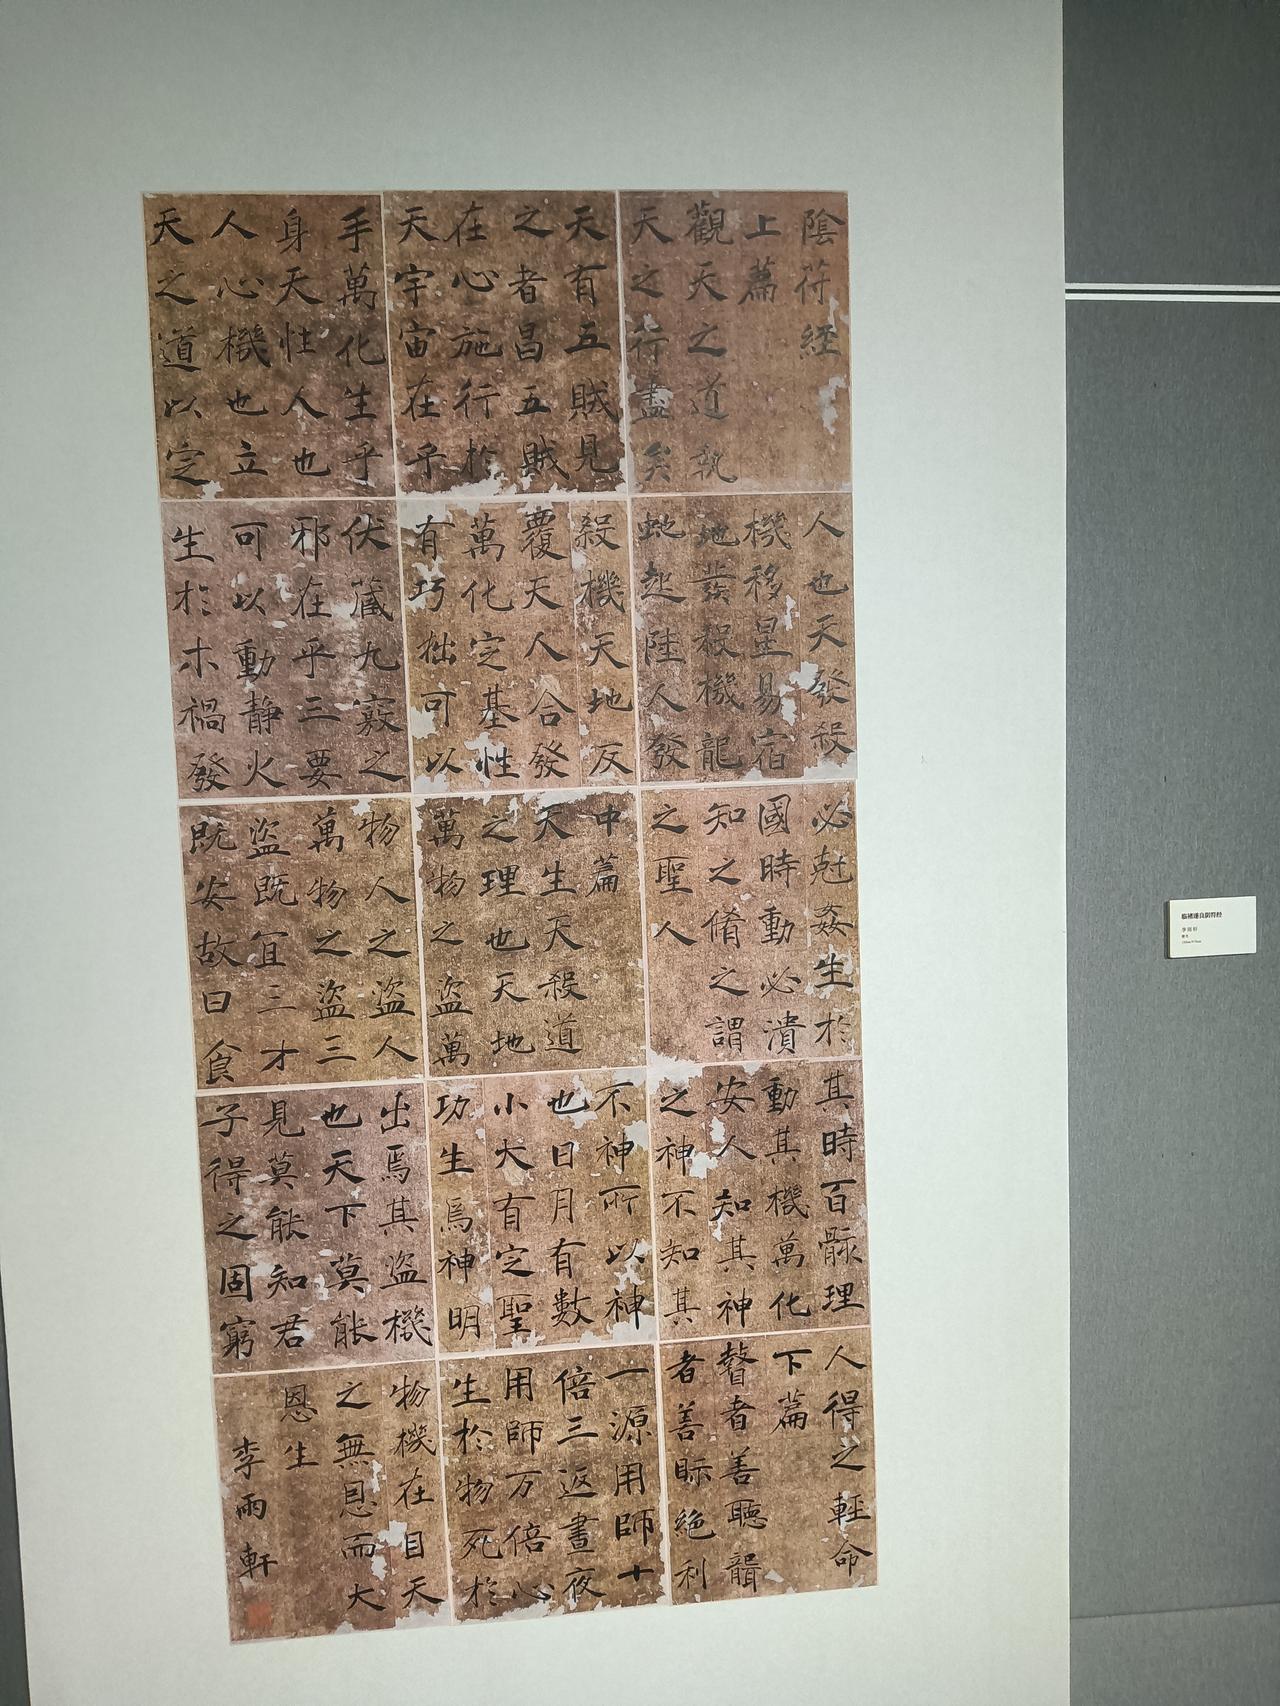 陰符經
上篇
觀天之道執
天之行盡矣
天有五賊見
之者昌五賊
在心施行於
天宇宙在乎
手萬化生乎
身天性人也
人心機也立
天之道以定
人也天發殺
機移星易宿
地發殺機龍
虵起陸人發
殺機天地反
覆天人合發
萬化定基性
有巧拙可以
伏藏九竅之
邪在乎三要
可以動静火
生於木禍發
必尅姦生於
國時動必潰
知之脩之謂
之聖人
中篇
天生天殺道
之理也天地
萬物之盜萬
物人之盜人
萬物之盜三
盜既宜三才
既安故曰食
其時百骸理
動其機萬化
安人知其神
之神不知其
不神所以神
也日月有數
小大有定聖
功生焉神明
出焉其盜機
也天下莫能
見莫能知君
子得之固窮
人得之輕命
下篇
瞽者善聽聾
者善眎絕利
一源用師十
倍三返晝夜
用師万倍心
生於物死於
物機在目天
之無恩而大
恩生
李雨軒
临褚遂良阴符经
李雨轩